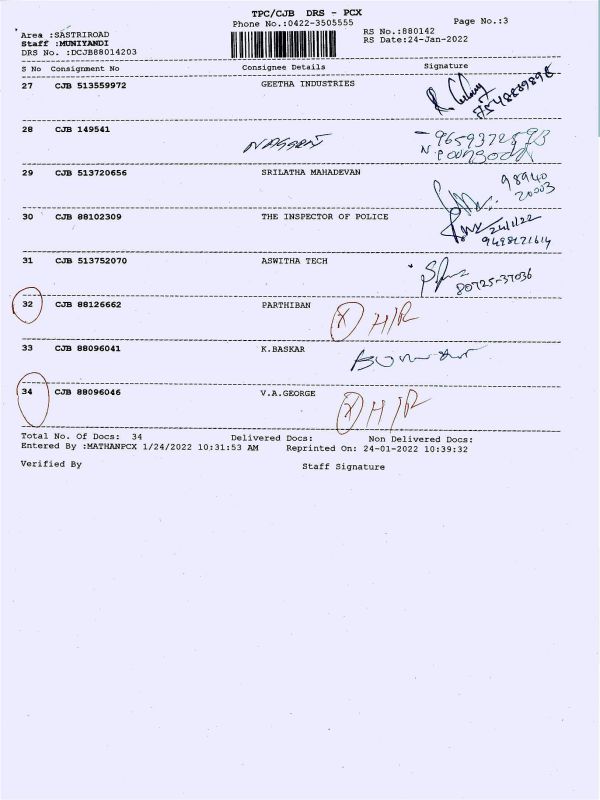 TPC/CJB DRS - PCX
Phone No.:0422-3505555
Page No.:3
Area :SASTRIROAD
Staff :MUNIYANDI
DRS No. :DCJB88014203
RS No.:880142
RS Date:24-Jan-2022
S No Consignment No Consignee Details Signature
27 CJB 513559972 GEETHA INDUSTRIES
28 CJB 149541
29 CJB 513720656 SRILATHA MAHADEVAN
98940
20003
30 CJB 88102309 THE INSPECTOR OF POLICE
24/1/22
31 CJB 513752070 ASWITHA TECH
80725-37036
32 CJB 88126662 PARTHIBAN (X) H/R
33 CJB 88096041 K.BASKAR
34 CJB 88096046 V.A.GEORGE (X) H/R
Total No. Of Docs: 34 Delivered Docs: Non Delivered Docs:
Entered By :MATHANPCX 1/24/2022 10:31:53 AM Reprinted On: 24-01-2022 10:39:32
Verified By Staff Signature